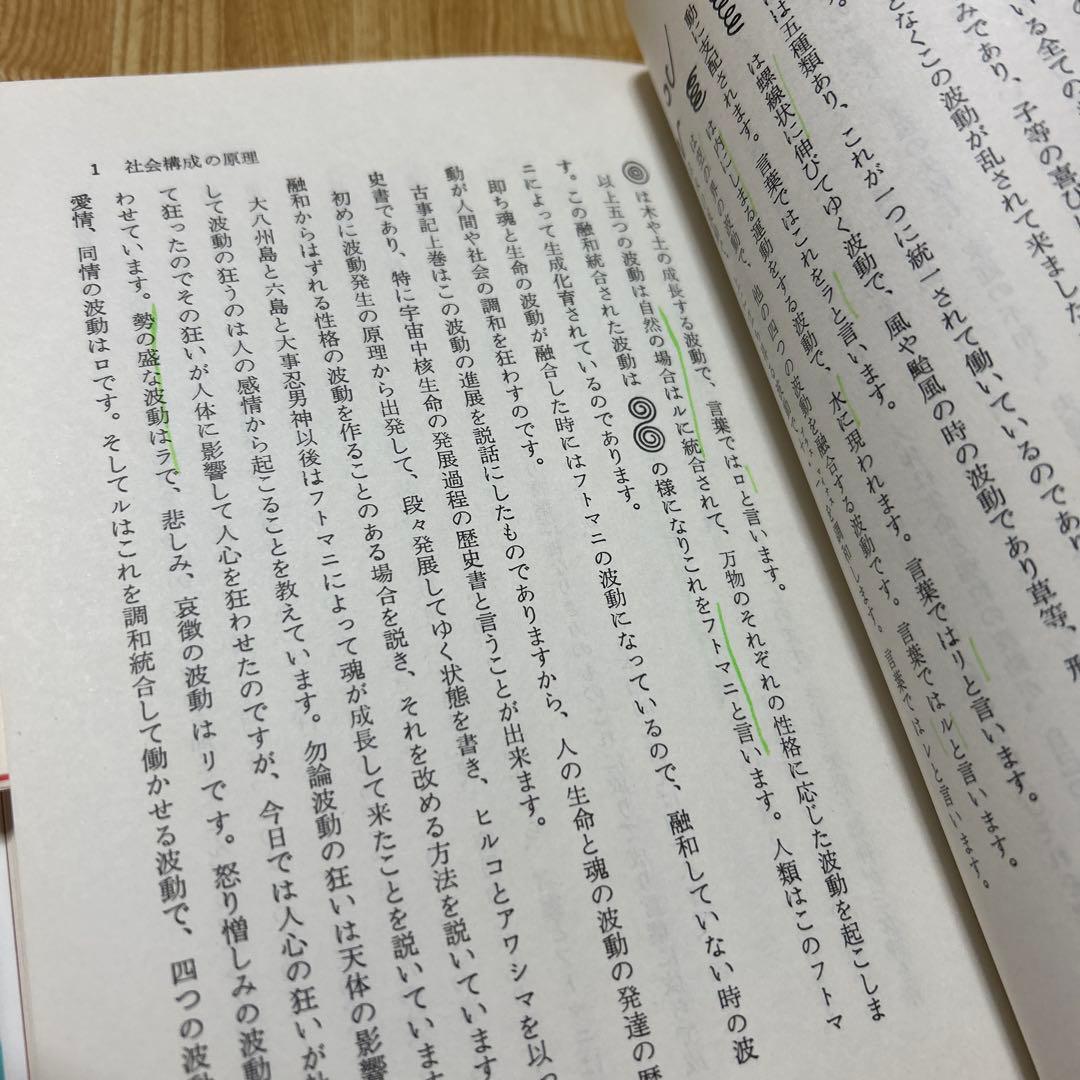 る全ての
みであり、子等の喜び
となくこの波動が乱されて来ました
は五種類あり、これが一つに統一されて働いているのであり
は螺線状に伸びてゆく波動で、風や颱風の時の波動であり草等、形
動に支配されます。言葉ではこれをラと言います。
は内にしまる運動をする波動で、水に現われます。言葉ではリと言います。
の四つの波動を融合する波動です。言葉ではルと言います。
調和します。言葉ではレと言います。
1 社会構成の原理
は木や土の成長する波動で、言葉ではロと言います。
以上五つの波動は自然の場合はルに統合されて、万物のそれぞれの性格に応じた波動を起こしま
す。この融和統合された波動は の様になりこれをフトマニと言います。人類はこのフトマ
ニによって生成化育されているのであります。
即ち魂と生命の波動が融合した時にはフトマニの波動になっているので、融和していない時の波
動が人間や社会の調和を狂わすのです。
古事記上巻はこの波動の進展を説話にしたものでありますから、人の生命と魂の波動の発達の歴
史書であり、特に宇宙中核生命の発展過程の歴史書と言うことが出来ます。
初めに波動発生の原理から出発して、段々発展してゆく状態を書き、ヒルコとアワシマを以っ
融和からはずれる性格の波動を作ることのある場合を説き、それを改める方法を説いています
大八州島と六島と大事忍男神以後はフトマニによって魂が成長して来たことを説いています
して波動の狂うのは人の感情から起こることを教えています。勿論波動の狂いは天体の影響
て狂ったのでその狂いが人体に影響して人心を狂わせたのですが、今日では人心の狂いが
わせています。勢の盛な波動はラで、悲しみ、哀徴の波動はリです。怒り憎しみの波動
愛情、同情の波動はロです。そしてルはこれを調和統合して働かせる波動で、四つの波